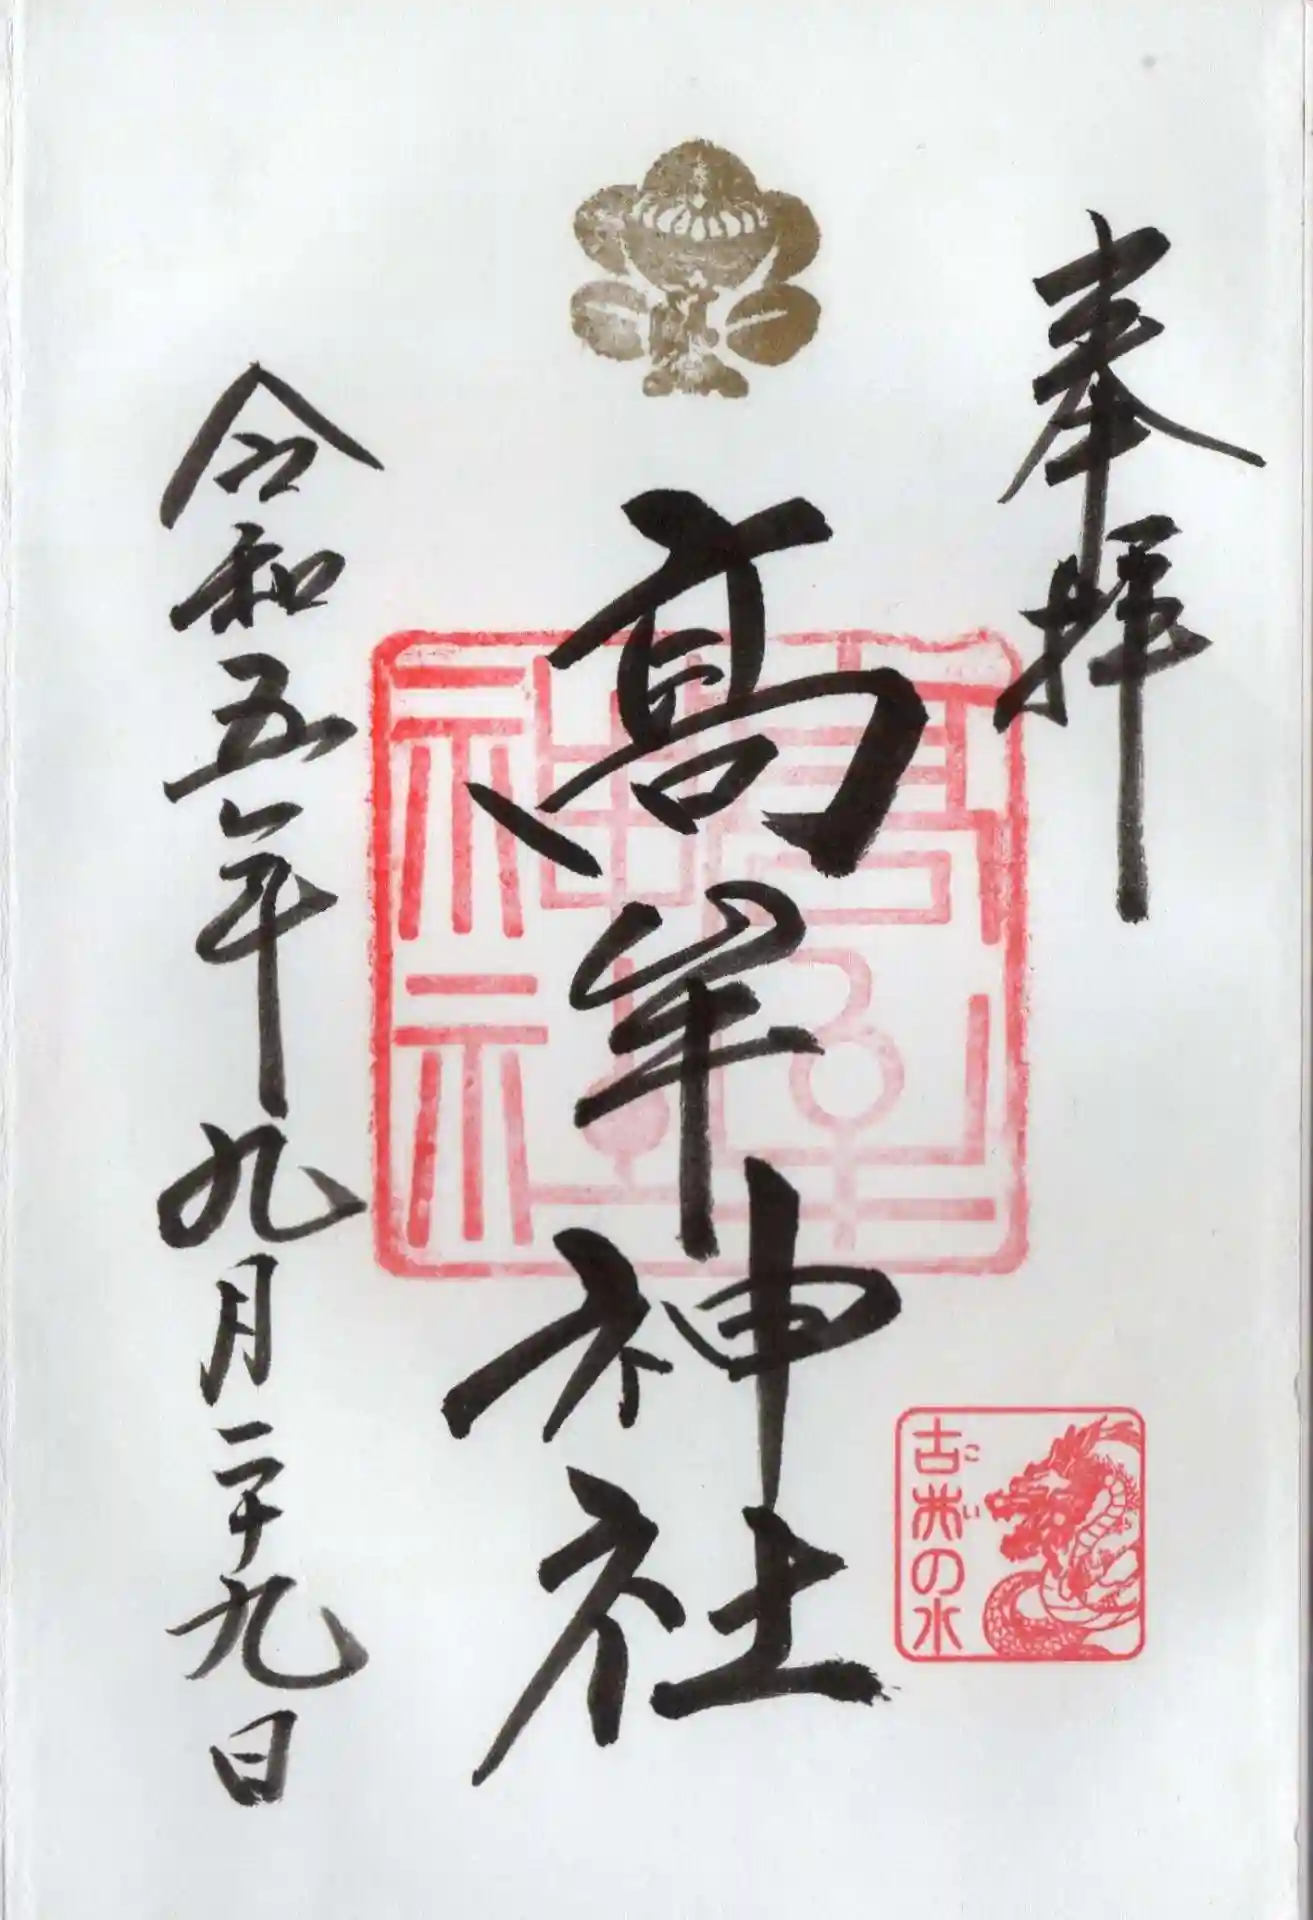 奉拝
髙牟神社
令和五年九月二十九日
高牟神社
古井の水
こい